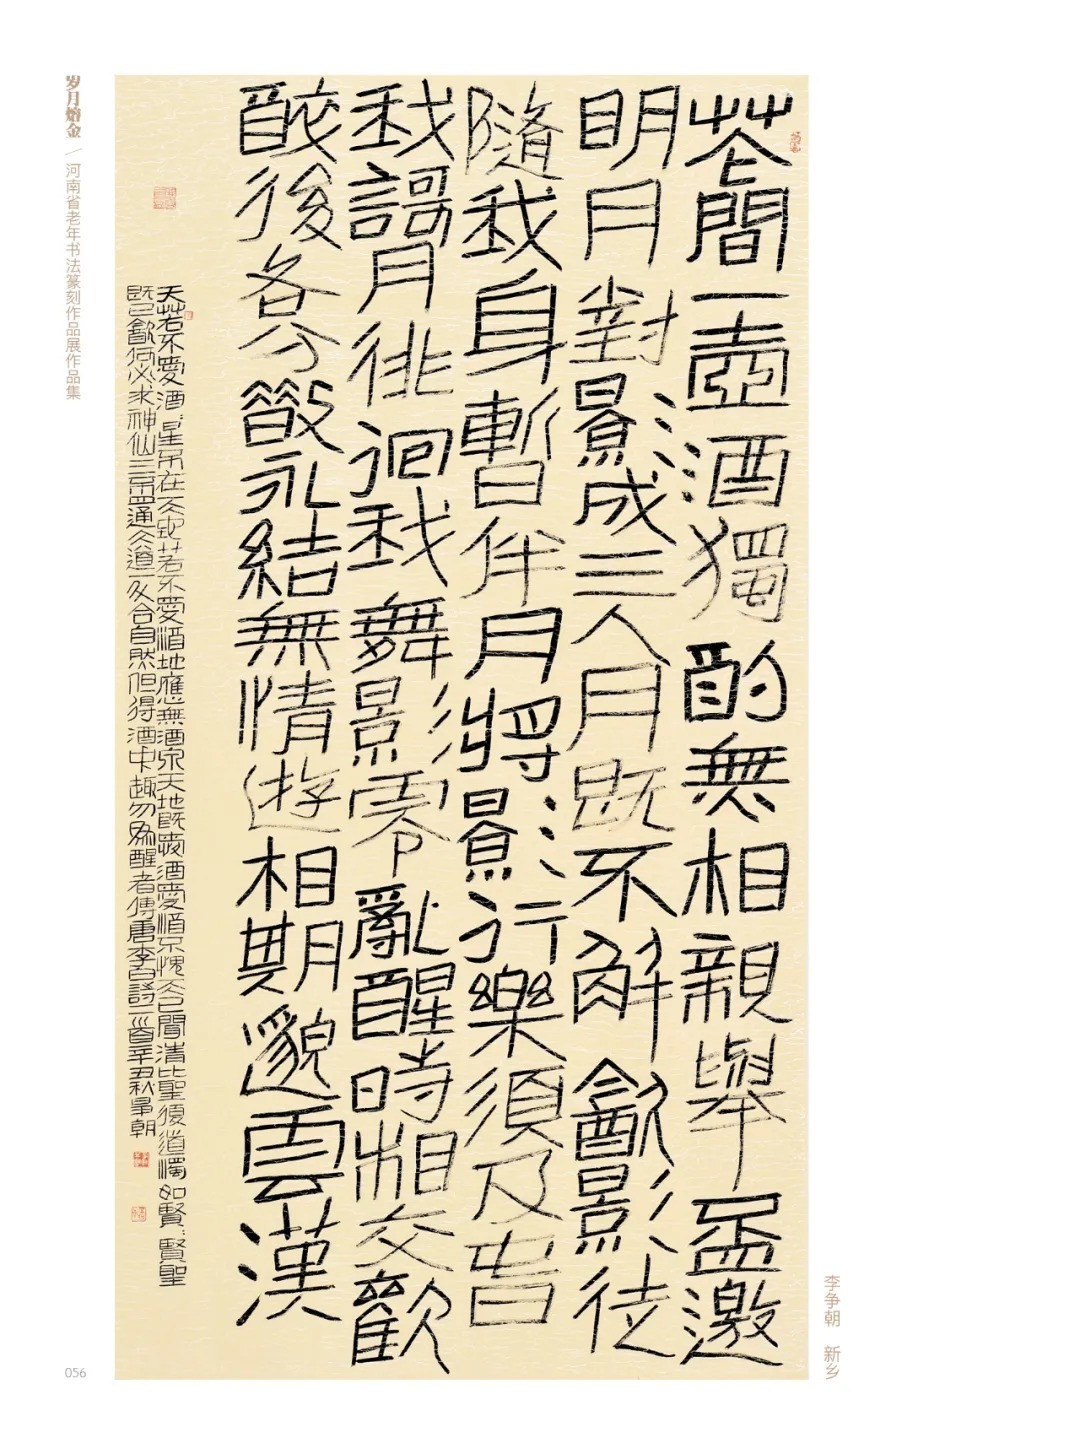 岁月熔金 / 河南省老年书法篆刻作品展作品集
花間一壺酒獨酌無相親舉盃邀
明月對影成三人月既不解㱃影徒
隨我身暫伴月將影行樂須及旾
我謌月徘徊我舞影零亂醒時相交歡
醉後各分散永結無情遊相期邈雲漢
天若不愛酒〻星不在天地若不愛酒地應無酒泉天地既愛酒愛酒不愧天已聞清比聖復道濁如賢〻賢聖
既已㱃何必求神仙三杯通大道一斗合自然但得酒中趣勿為醒者傳唐李白詩一首辛丑秋爭朝
李争朝 新乡
056